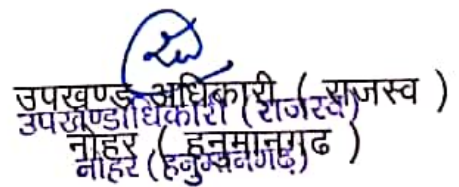 उपखण्ड अधिकारी ( राजस्व )
उपखण्डाधिकारी (राजस्व)
नोहर ( हनुमानगढ )
नोहर (हनुमानगढ़)